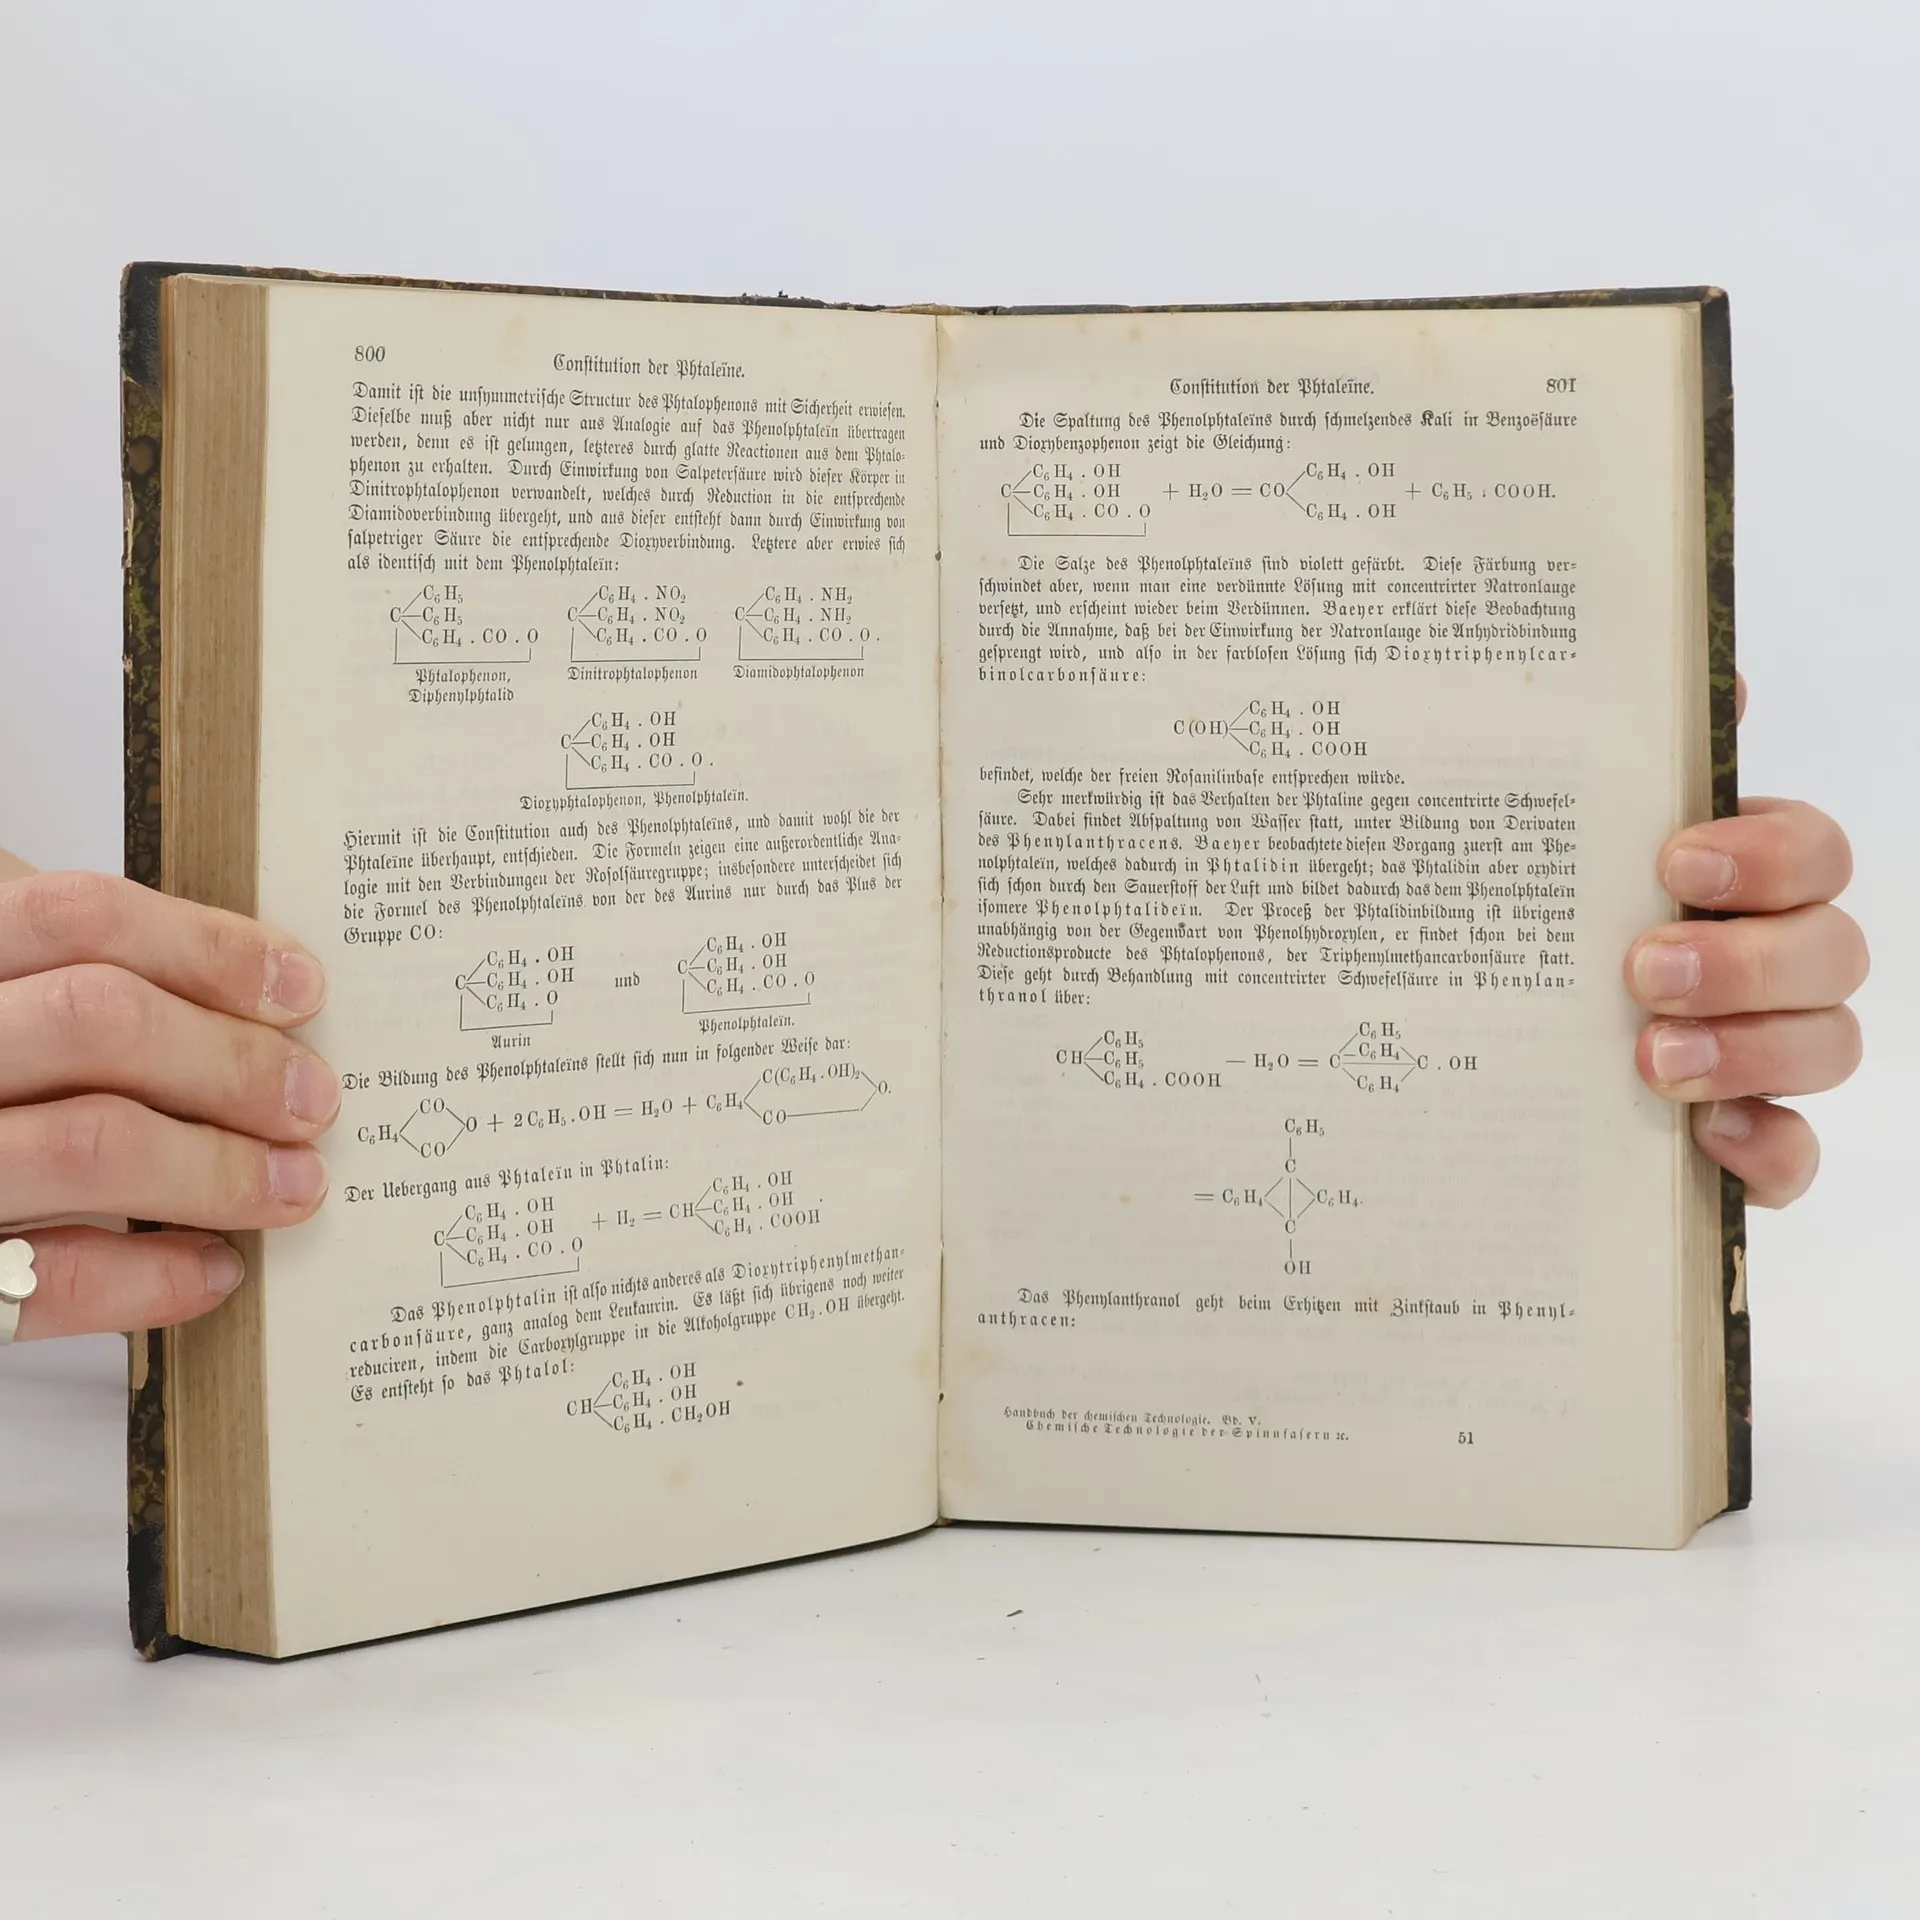 800
Constitution der Phtaleïne.
Damit ist die unsymmetrische Structur des Phtalophenons mit Sicherheit erwiesen.
Dieselbe muß aber nicht nur aus Analogie auf das Phenolphtaleïn übertragen
werden, denn es ist gelungen, letzteres durch glatte Reactionen aus dem Phtalo-
phenon zu erhalten. Durch Einwirkung von Salpetersäure wird dieser Körper in
Dinitrophtalophenon verwandelt, welches durch Reduction in die entsprechende
Diamidoverbindung übergeht, und aus dieser entsteht dann durch Einwirkung von
salpetriger Säure die entsprechende Dioxyverbindung. Letztere aber erwies sich
als identisch mit dem Phenolphtaleïn:
C₆H₅ C₆H₄ . NO₂ C₆H₄ . NH₂
C—C₆H₅ C—C₆H₄ . NO₂ C—C₆H₄ . NH₂
C₆H₄ . CO . O C₆H₄ . CO . O C₆H₄ . CO . O .
Phtalophenon, Dinitrophtalophenon Diamidophtalophenon
Diphenylphtalid
C₆H₄ . OH
C—C₆H₄ . OH
C₆H₄ . CO . O .
Dioxyphtalophenon, Phenolphtaleïn.
Hiermit ist die Constitution auch des Phenolphtaleïns, und damit wohl die der
Phtaleïne überhaupt, entschieden. Die Formeln zeigen eine außerordentliche Ana-
logie mit den Verbindungen der Rosolsäuregruppe; insbesondere unterscheidet sich
die Formel des Phenolphtaleïns von der des Aurins nur durch das Plus der
Gruppe CO:
C₆H₄ . OH C₆H₄ . OH
C—C₆H₄ . OH und C—C₆H₄ . OH
C₆H₄ . O C₆H₄ . CO . O
Aurin Phenolphtaleïn.
Die Bildung des Phenolphtaleïns stellt sich nun in folgender Weise dar:
CO C(C₆H₄ . OH)₂
C₆H₄ O + 2 C₆H₅ . OH = H₂O + C₆H₄ O.
CO CO
Der Uebergang aus Phtaleïn in Phtalin:
C₆H₄ . OH C₆H₄ . OH
C—C₆H₄ . OH + H₂ = CH—C₆H₄ . OH .
C₆H₄ . CO . O C₆H₄ . COOH
Das Phenolphtalin ist also nichts anderes als Dioxytriphenylmethan-
carbonsäure, ganz analog dem Leukaurin. Es läßt sich übrigens noch weiter
reduciren, indem die Carboxylgruppe in die Alkoholgruppe CH₂ . OH übergeht.
Es entsteht so das Phtalol:
C₆H₄ . OH
CH—C₆H₄ . OH
C₆H₄ . CH₂OH
Constitution der Phtaleïne.
801
Die Spaltung des Phenolphtaleïns durch schmelzendes Kali in Benzoësäure
und Dioxybenzophenon zeigt die Gleichung:
C₆H₄ . OH C₆H₄ . OH
C—C₆H₄ . OH + H₂O = CO + C₆H₅ . COOH.
C₆H₄ . CO . O C₆H₄ . OH
Die Salze des Phenolphtaleïns sind violett gefärbt. Diese Färbung ver-
schwindet aber, wenn man eine verdünnte Lösung mit concentrirter Natronlauge
versetzt, und erscheint wieder beim Verdünnen. Baeyer erklärt diese Beobachtung
durch die Annahme, daß bei der Einwirkung der Natronlauge die Anhydridbindung
gesprengt wird, und also in der farblosen Lösung sich Dioxytriphenylcar-
binolcarbonsäure:
C₆H₄ . OH
C(OH)—C₆H₄ . OH
C₆H₄ . COOH
befindet, welche der freien Rosanilinbase entsprechen würde.
Sehr merkwürdig ist das Verhalten der Phtaline gegen concentrirte Schwefel-
säure. Dabei findet Abspaltung von Wasser statt, unter Bildung von Derivaten
des Phenylanthracens. Baeyer beobachtete diesen Vorgang zuerst am Phe-
nolphtaleïn, welches dadurch in Phtalidin übergeht; das Phtalidin aber oxydirt
sich schon durch den Sauerstoff der Luft und bildet dadurch das dem Phenolphtaleïn
isomere Phenolphtalideïn. Der Proceß der Phtalidinbildung ist übrigens
unabhängig von der Gegenwart von Phenolhydroxylen, er findet schon bei dem
Reductionsproducte des Phtalophenons, der Triphenylmethancarbonsäure statt.
Diese geht durch Behandlung mit concentrirter Schwefelsäure in Phenylan-
thranol über:
C₆H₅ C₆H₅
CH—C₆H₅ — H₂O = C—C₆H₄ C . OH
C₆H₄ . COOH C₆H₄
C₆H₅
C
= C₆H₄ C₆H₄.
C
OH
Das Phenylanthranol geht beim Erhitzen mit Zinkstaub in Phenyl-
anthracen:
Handbuch der chemischen Technologie. Bd. V.
Chemische Technologie der Spinnfasern ꝛc.
51